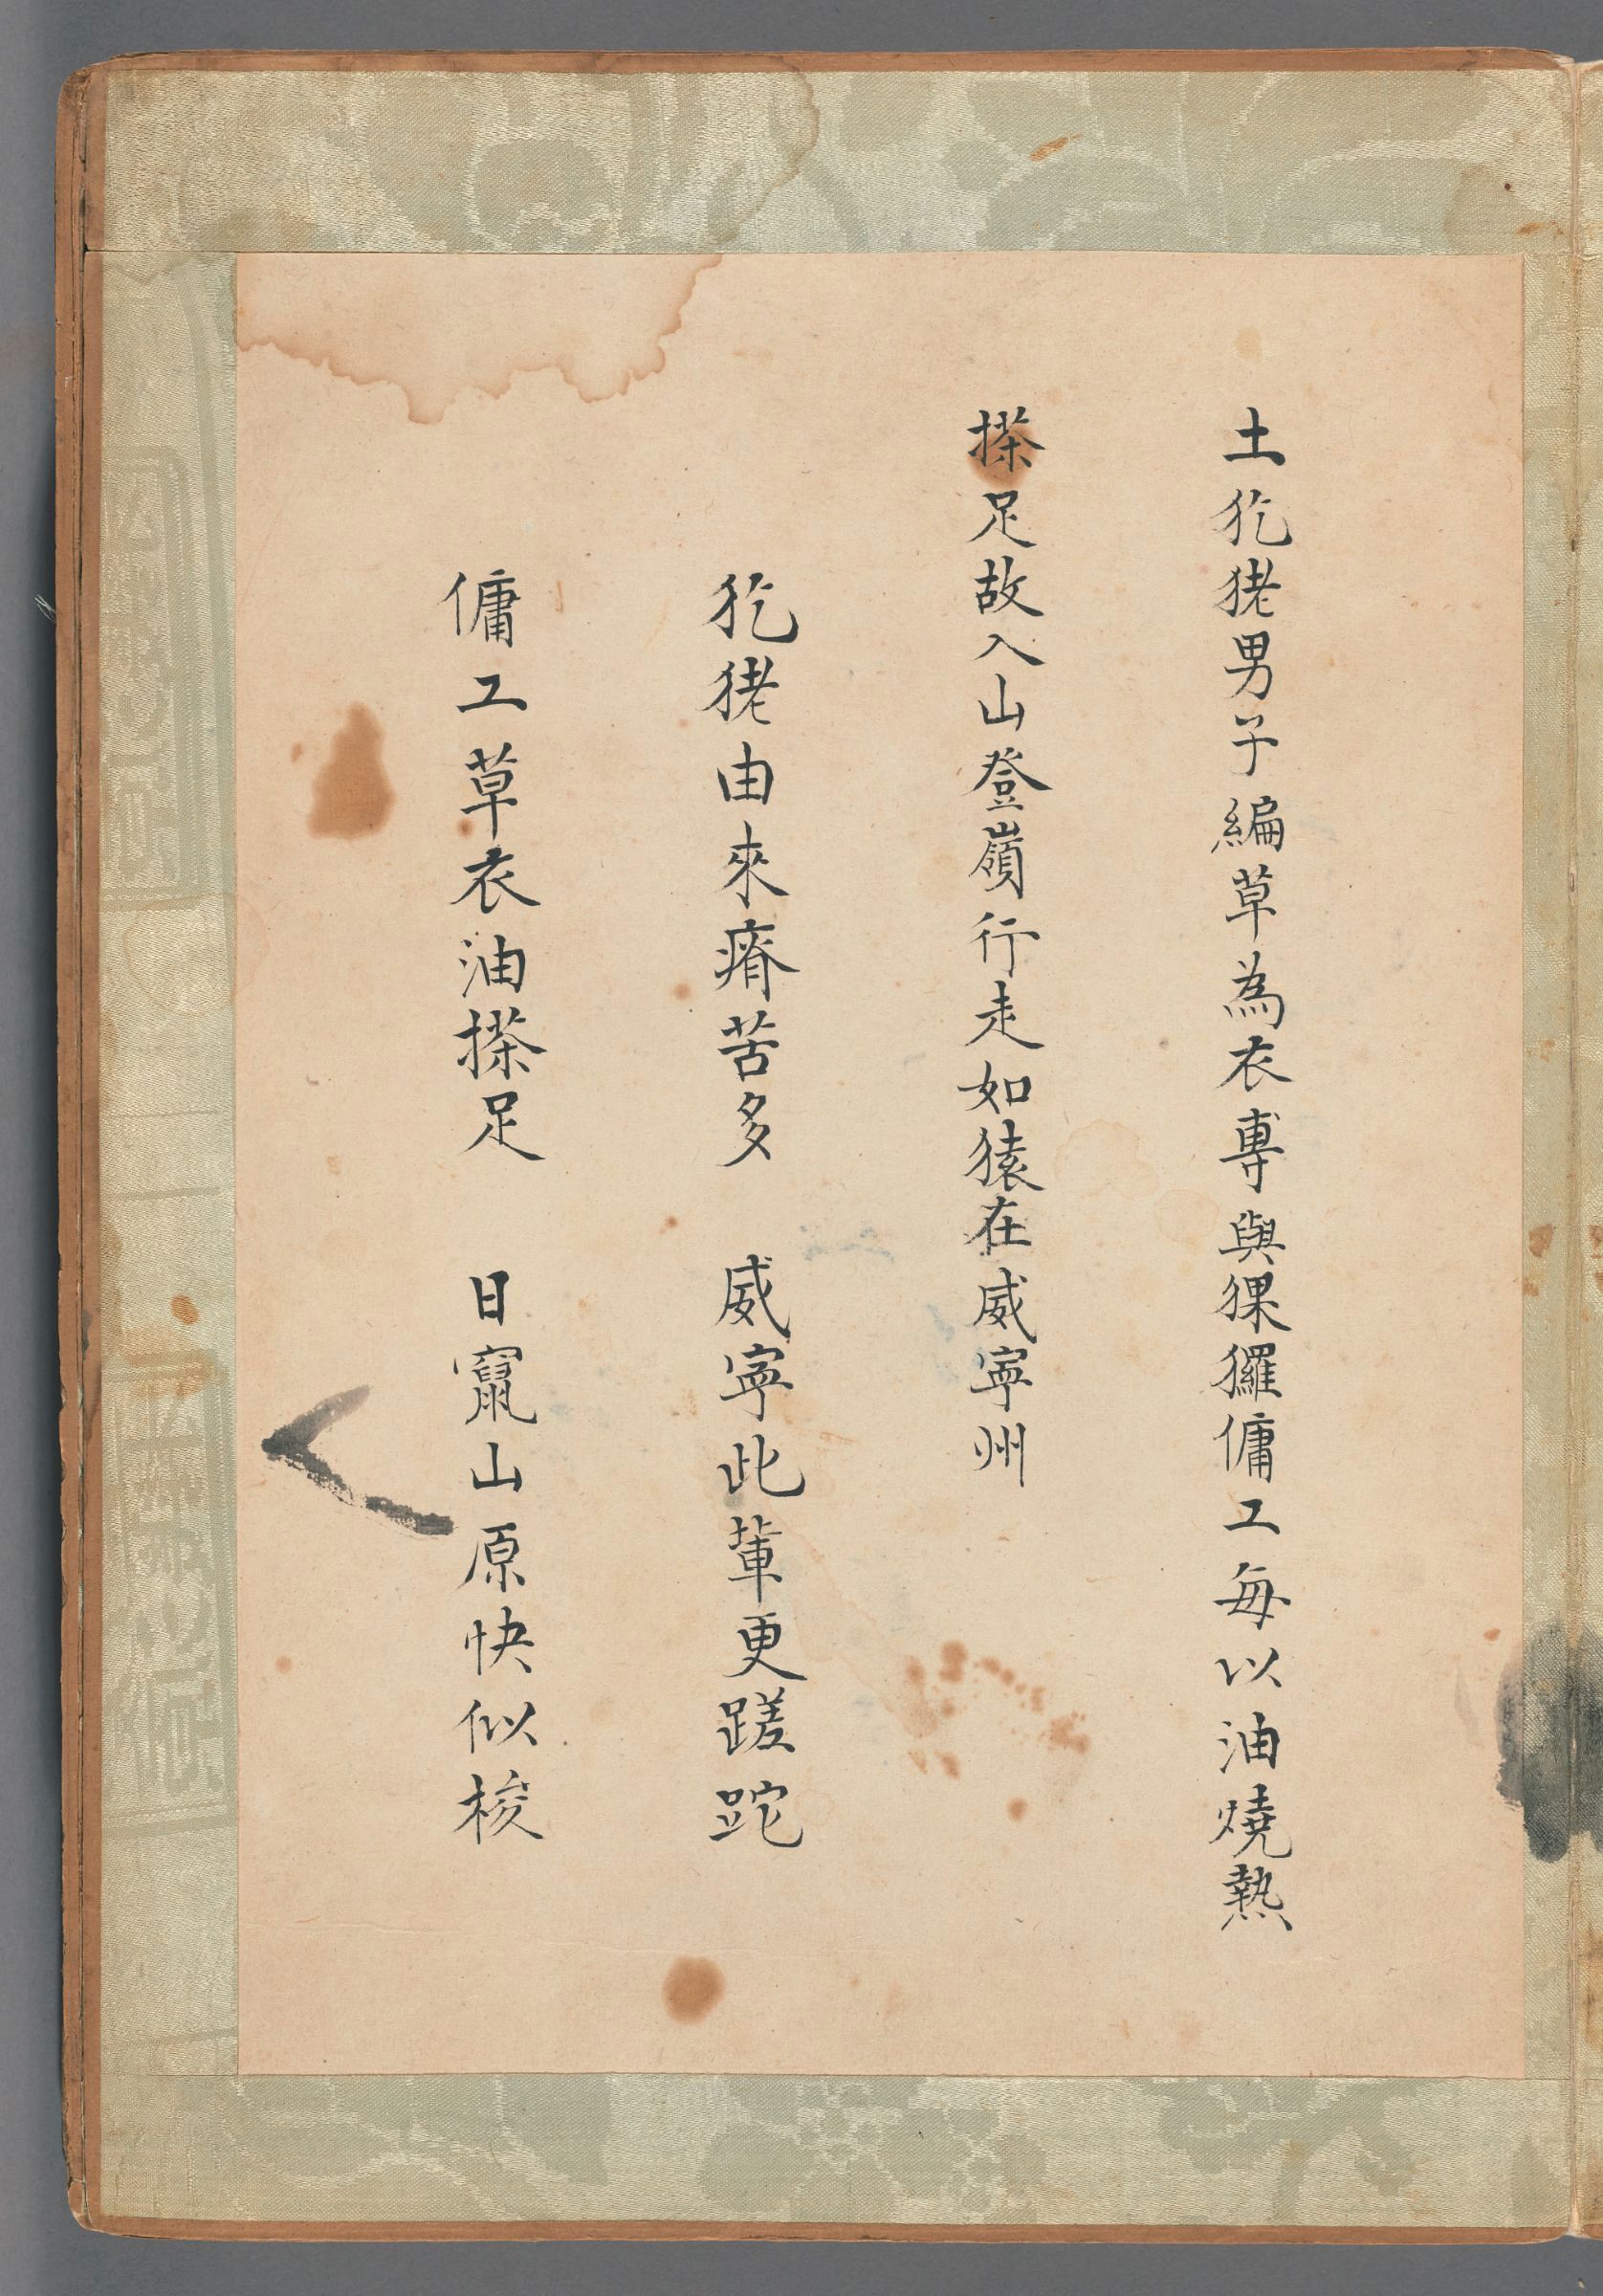 土犵狫男子編草為衣專與猓玀傭工每以油燒熱
搽足故入山登嶺行走如猿在威寧州
犵狫由來瘠苦多 威寧此輩更蹉跎
傭工草衣油搽足 日竄山原快似梭